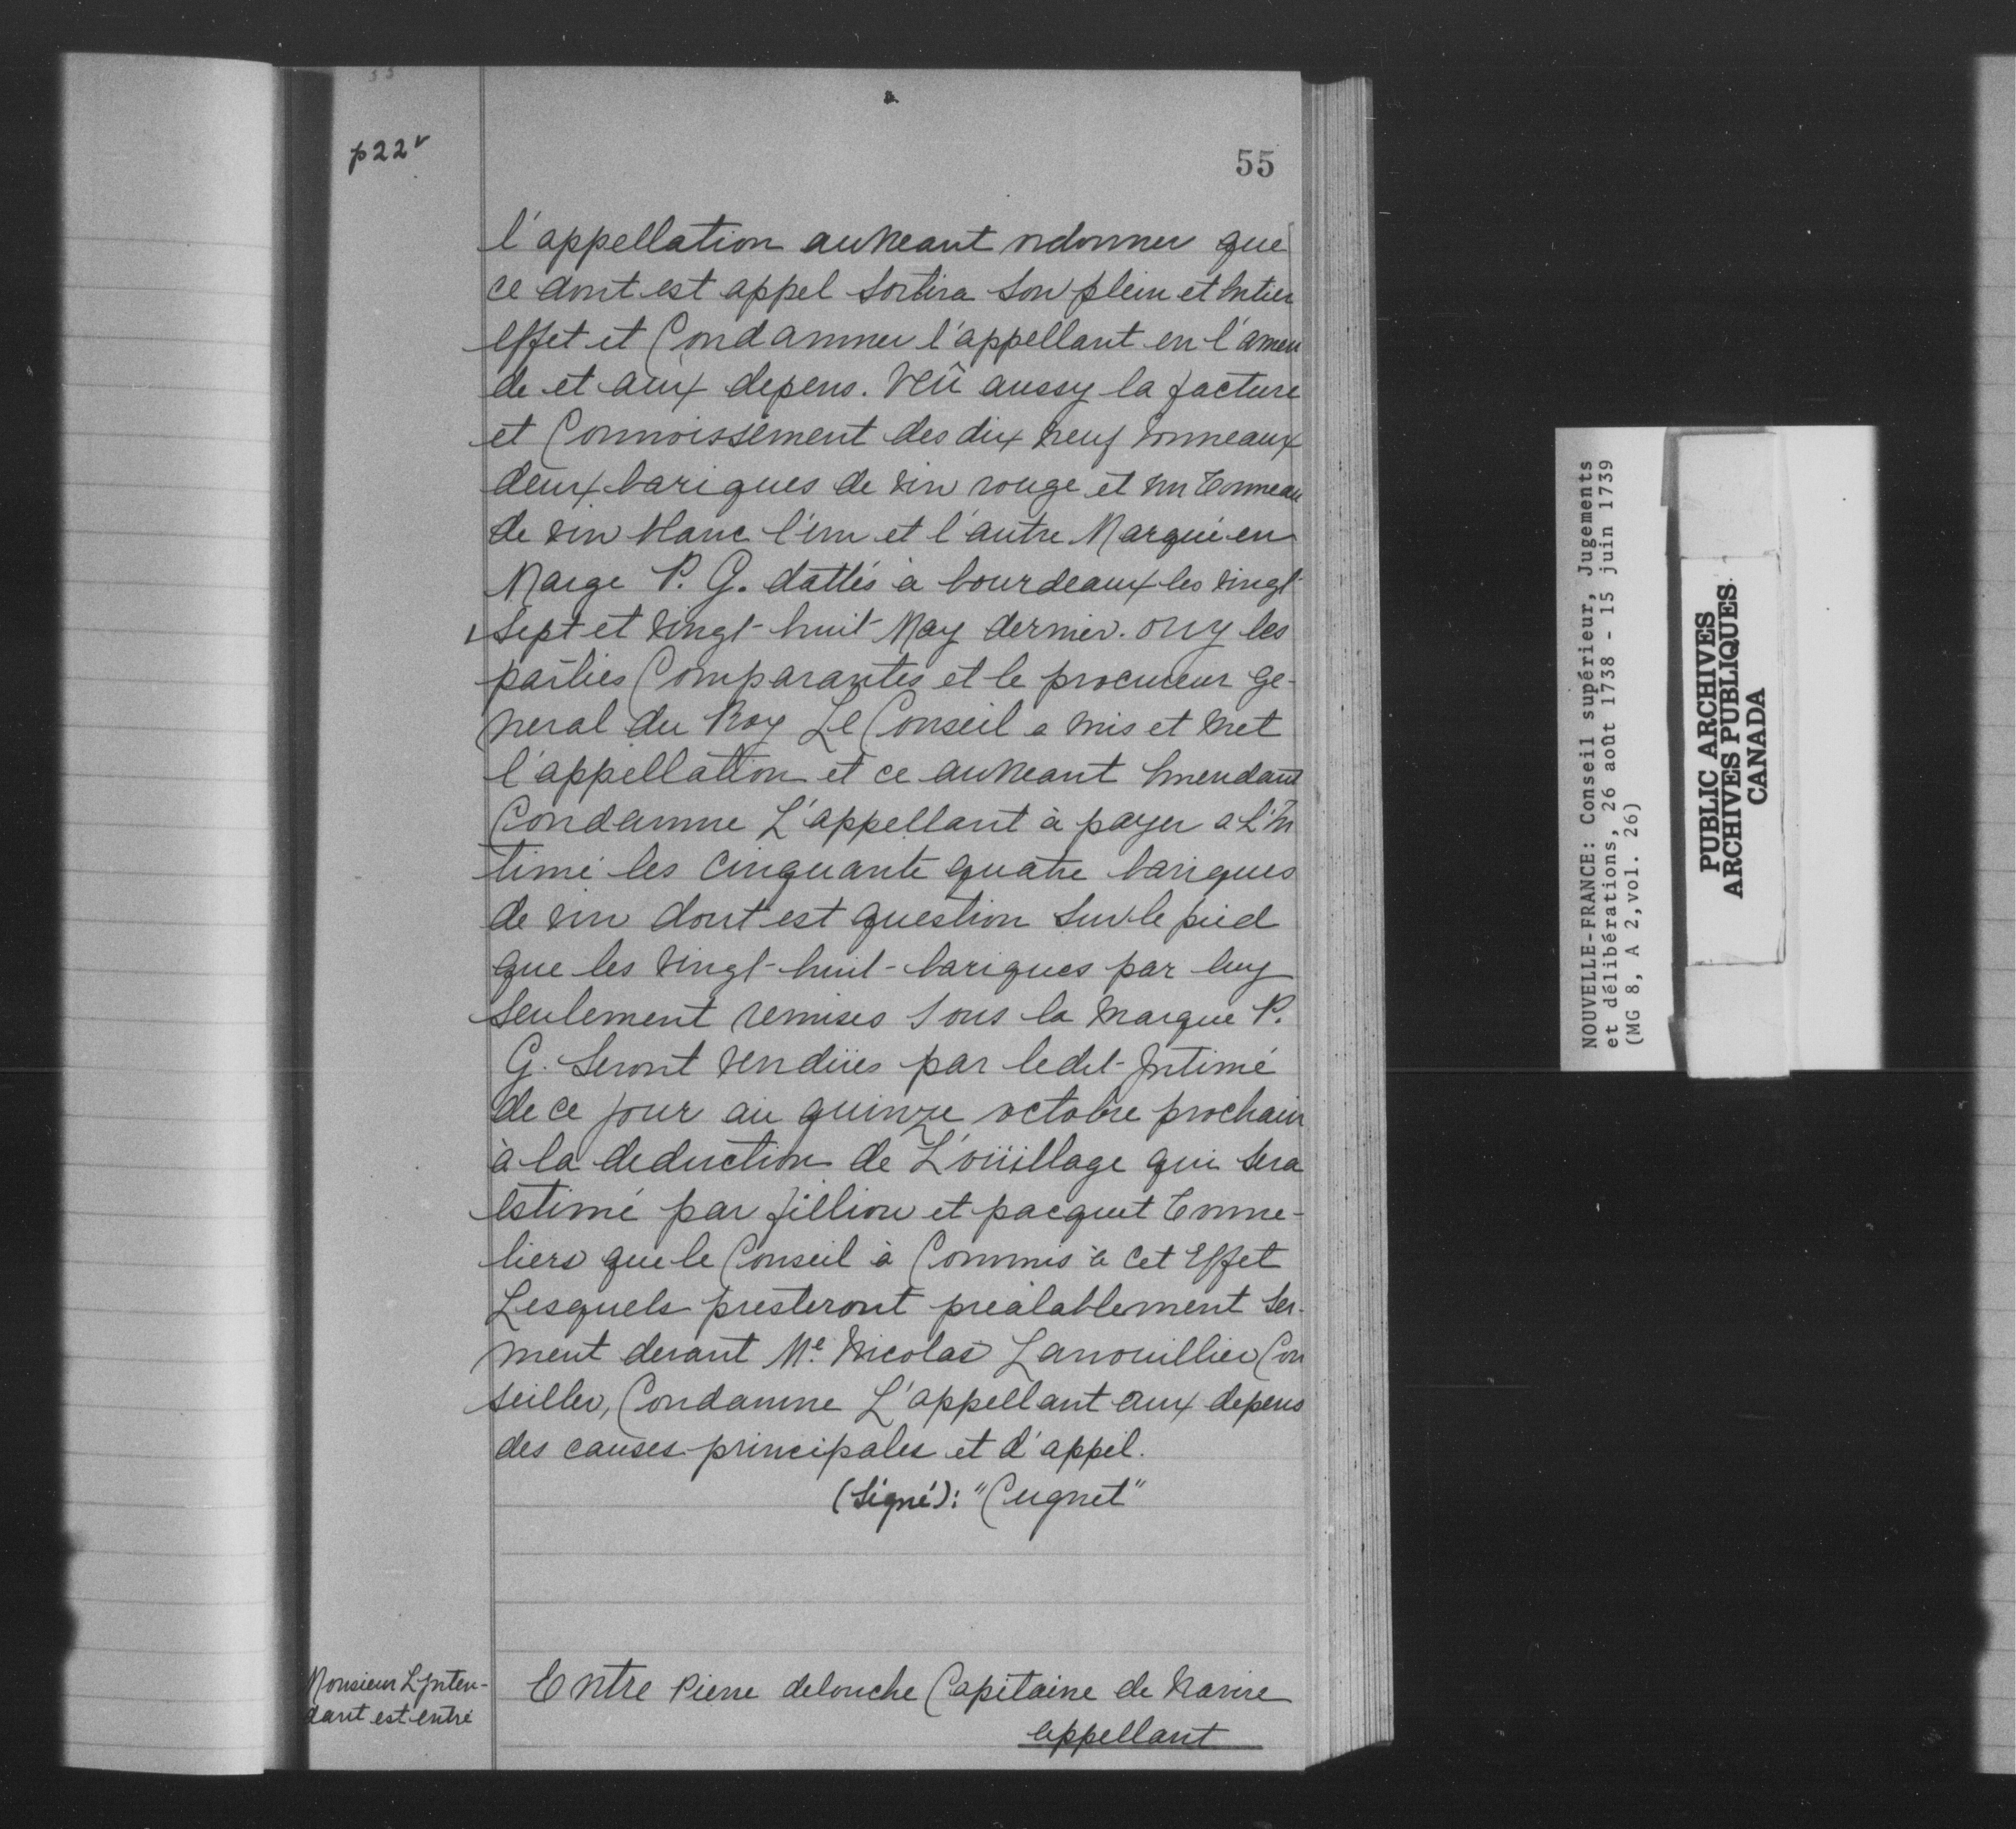 p 22v
55
l'appellation au neant ordonner que
ce dont est appel sortira son plein et Entier
Effet et Condamner l'appellant en l'amen
de et aux depens. Veû aussy la facture
et Connoissement des dix neuf tonneaux
deux bariques de vin rouge et un Tonneau
de vin blanc l'un et l'autre Marqué en
Marge P. G. dattés a bourdeaux les vingt
sept et vingt-huit May dernier. ouy les
parties Comparantes et le procureur ge-
neral du Roy Le Conseil a mis et met
l'appellation et ce au neant Emendant
Condamne L'appellant à payer a L'In
timé les cinquante quatre bariques
de vin dont est question sur le pied
que les vingt-huit-bariques par luy
seulement remises sous la marque P.
G. seront vendües par ledit-Intimé
de ce jour au quinze octobre prochain
à la deduction de L'oüillage qui sera
Estimé par fillion et pacquet Tonne-
liers que le Conseil à Commis à cet Effet
Lesquels presteront prealablement ser-
ment devant Me. Nicolas Lanouillier Con
seiller, Condamne L'appellant aux depens
des causes principales et d'appel.
(Signé): "Cugnet"
Monsieur L'Inten-
dant est entré
Entre Pierre delouche Capitaine de Navire
appellant
NOUVELLE-FRANCE: Conseil supérieur, Jugements
et délibérations, 26 août 1738 - 15 juin 1739
(MG 8, A 2, vol. 26)
PUBLIC ARCHIVES
ARCHIVES PUBLIQUES
CANADA